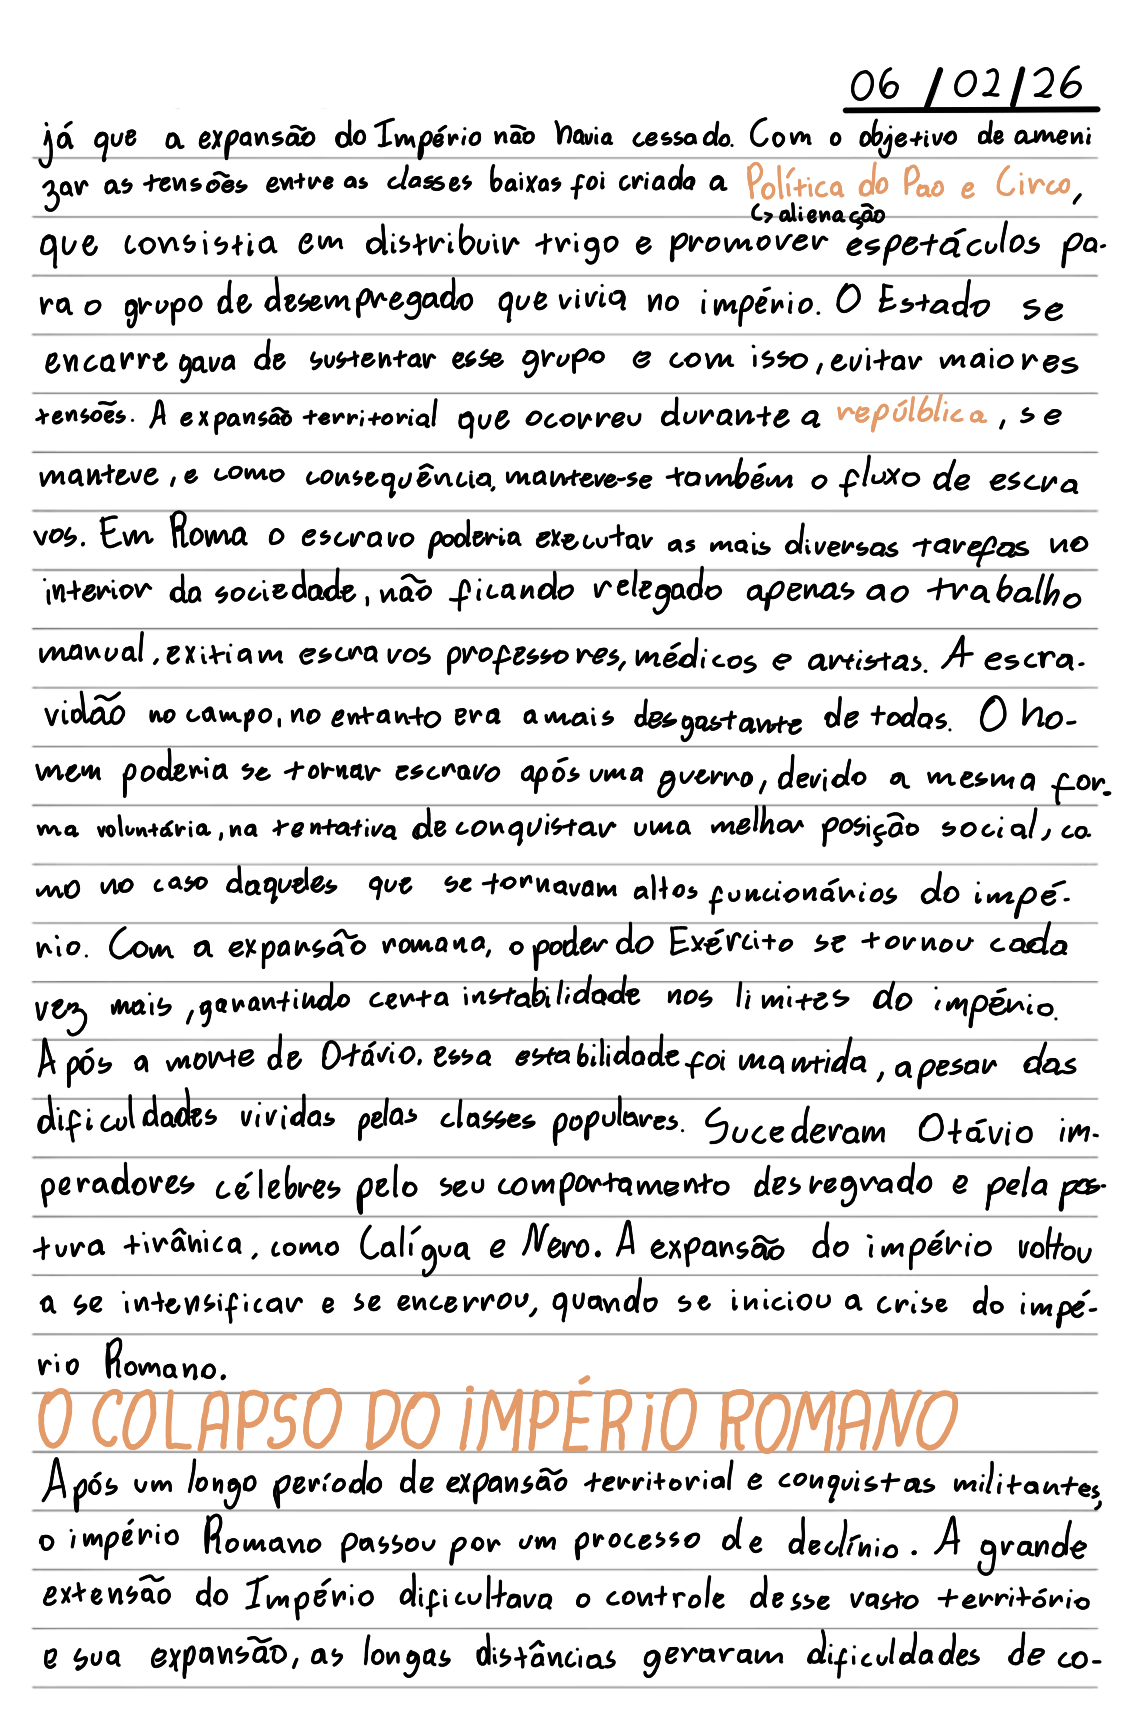 06/02/26
já que a expansão do Império não havia cessado. Com o objetivo de ameni
zar as tensões entre as classes baixas foi criada a Política do Pao e Circo,
↳ alienação
que consistia em distribuir trigo e promover espetáculos pa-
ra o grupo de desempregado que vivia no império. O Estado se
encarregava de sustentar esse grupo e com isso, evitar maiores
tensões. A expansão territorial que ocorreu durante a repúlblica, se
manteve, e como consequência, manteve-se também o fluxo de escra
vos. Em Roma o escravo poderia executar as mais diversas tarefas no
interior da sociedade, não ficando relegado apenas ao trabalho
manual, exitiam escravos professores, médicos e artistas. A escra-
vidão no campo, no entanto era a mais desgastante de todas. O ho-
mem poderia se tornar escravo após uma guerra, devido a mesma for-
ma voluntária, na tentativa de conquistar uma melhor posição social, co
mo no caso daqueles que se tornavam altos funcionários do impé-
rio. Com a expansão romana, o poder do Exército se tornou cada
vez mais, garantindo certa instabilidade nos limites do império.
Após a morte de Otávio, essa estabilidade foi mantida, apesar das
dificuldades vividas pelas classes populares. Sucederam Otávio im-
peradores célebres pelo seu comportamento desregrado e pela pos-
tura tirânica, como Calígua e Nero. A expansão do império voltou
a se intensificar e se encerrou, quando se iniciou a crise do impé-
rio Romano.
O COLAPSO DO IMPÉRIO ROMANO
Após um longo período de expansão territorial e conquistas militantes,
o império Romano passou por um processo de declínio. A grande
extensão do Império dificultava o controle desse vasto território
e sua expansão, as longas distâncias geraram dificuldades de co-